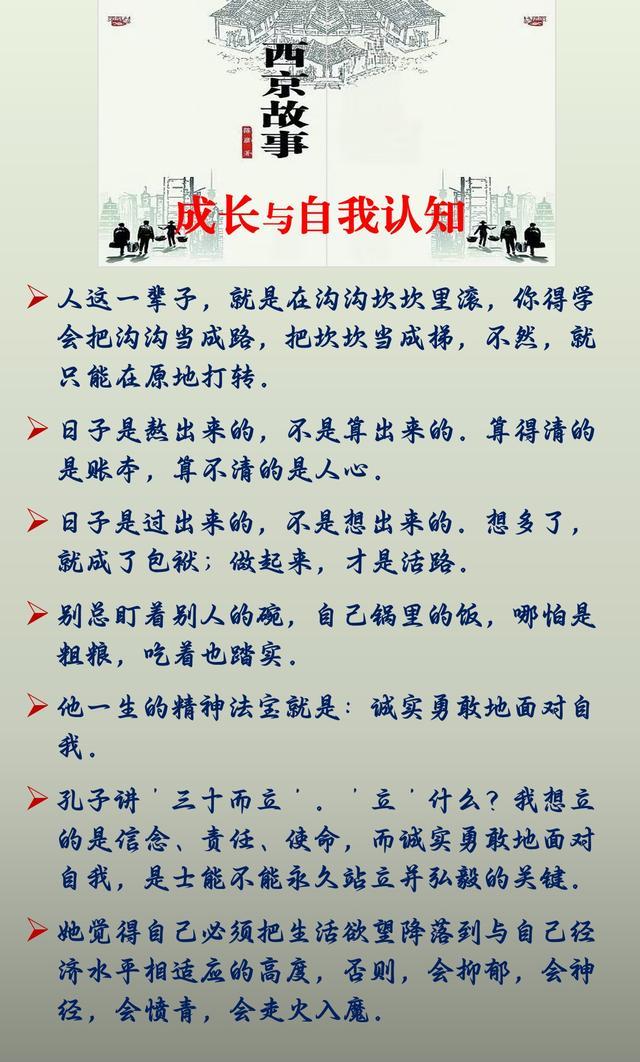 西京故事
陈彦 著
成长与自我认知
人这一辈子，就是在沟沟坎坎里滚，你得学
会把沟沟当成路，把坎坎当成梯，不然，就
只能在原地打转．
日子是熬出来的，不是算出来的．算得清的
是账本，算不清的是人心．
日子是过出来的，不是想出来的．想多了，
就成了包袱；做起来，才是活路．
别总盯着别人的碗，自己锅里的饭，哪怕是
粗粮，吃着也踏实．
他一生的精神法宝就是：诚实勇敢地面对自
我．
孔子讲＇三十而立＇．＇立＇什么？我想立
的是信念、责任、使命，而诚实勇敢地面对
自我，是士能不能永久站立并弘毅的关键．
她觉得自己必须把生活欲望降落到与自己经
济水平相适应的高度，否则，会抑郁，会神
经，会愤青，会走火入魔．